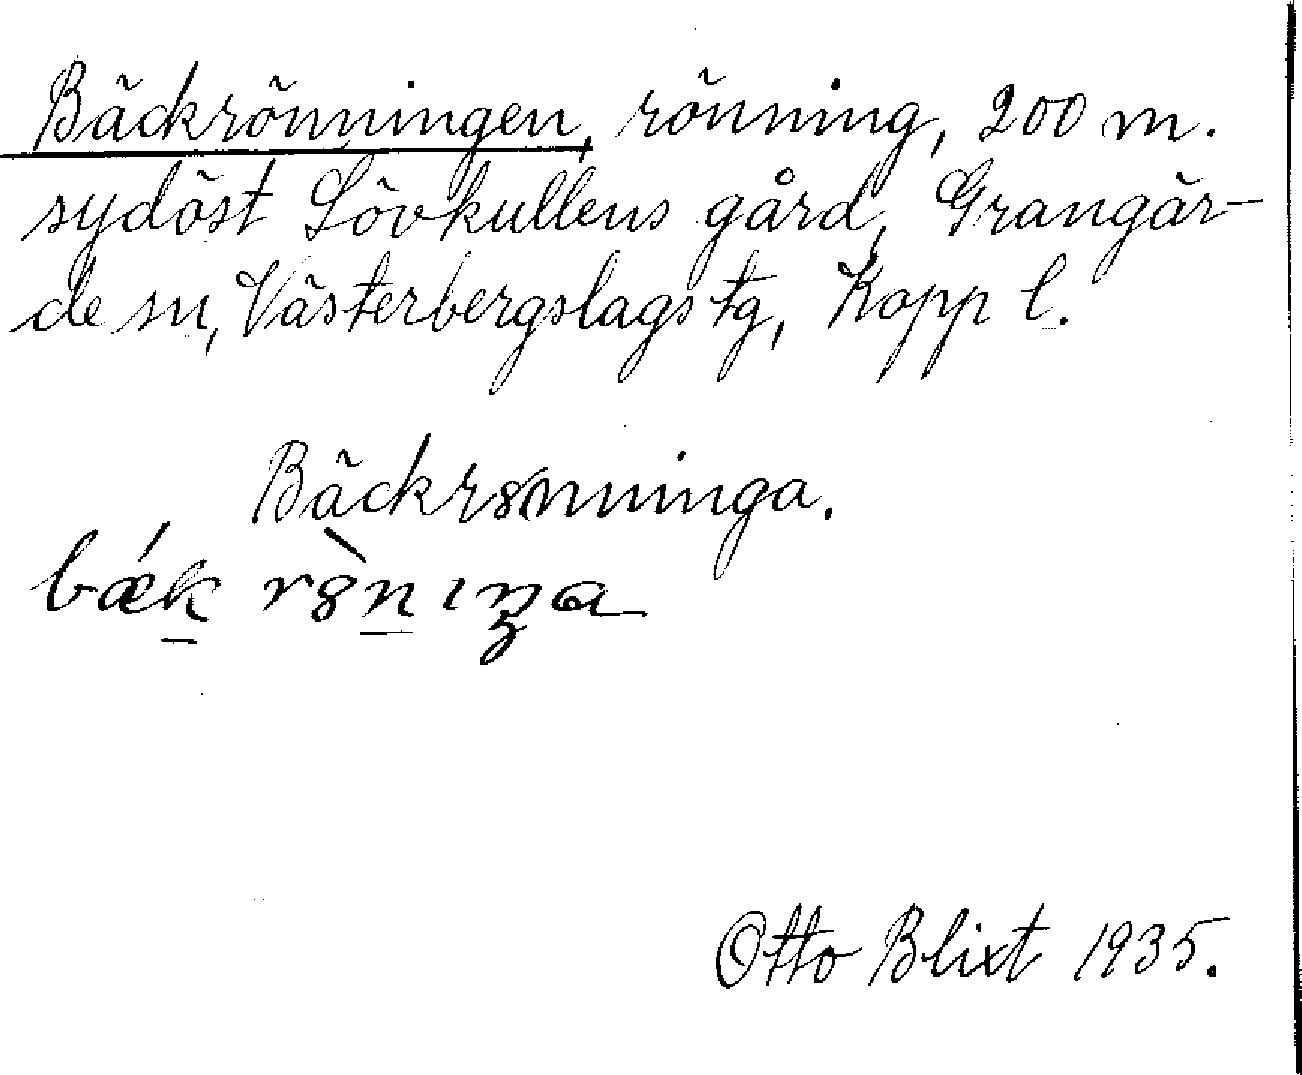 Bäckrönningen, rönning, 200 m.
sydöst Lövkullens gård, Grangär-
de sn, Västerbergslags tg, Kopp l.
Bäckrönninga.
bǽk rȣ̀nıŋa
Otto Blixt 1935.